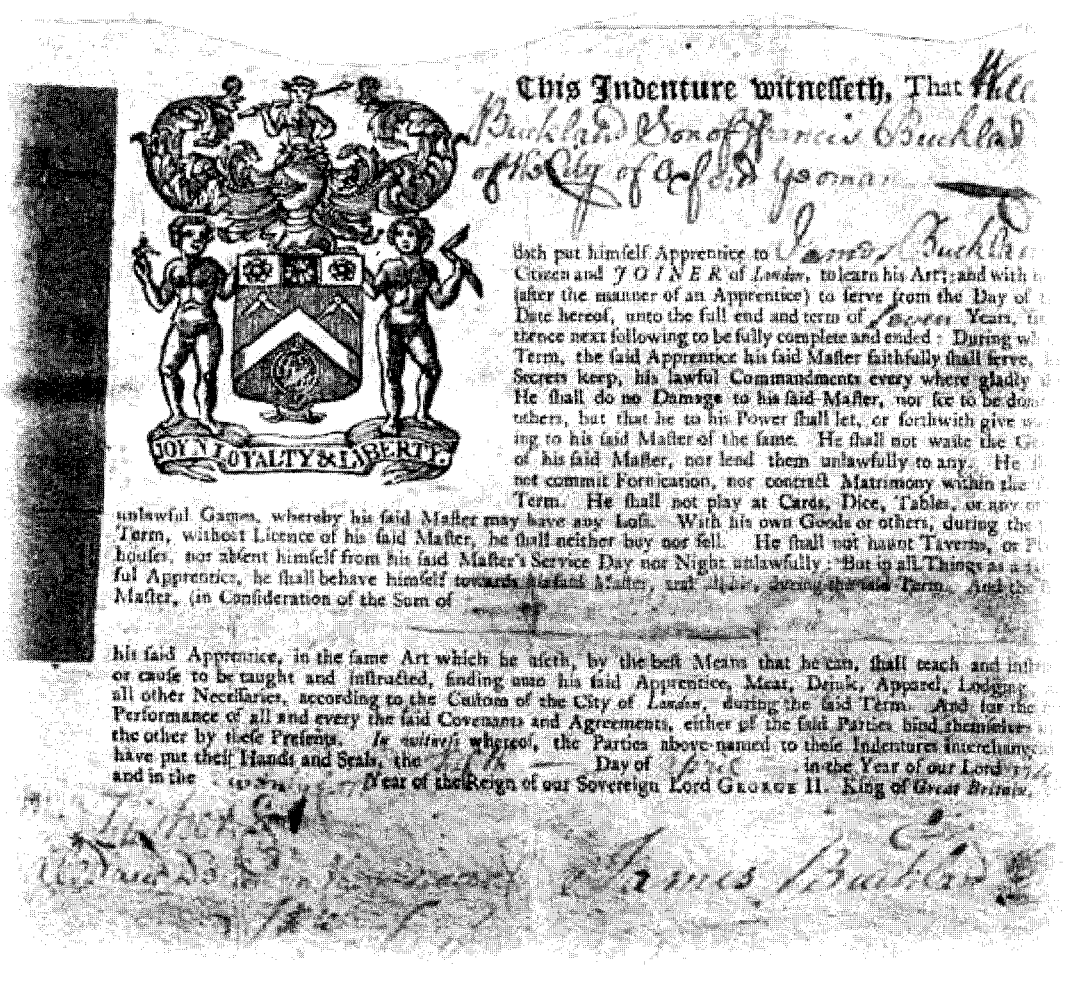 This Indenture witnesseth, That Will
Buckland Son of Francis Buckland
of the City of Oxford Yeoman
doth put himself Apprentice to James Buckland
Citizen and JOINER of London, to learn his Art; and with
(after the manner of an Apprentice) to serve from the Day of
Date hereof, unto the full end and term of Seven Years,
thence next following to be fully complete and ended: During
Term, the said Apprentice his said Master faithfully shall serve,
Secrets keep, his lawful Commandments every where gladly
He shall do no Damage to his said Master, nor see to be
others, but that he to his Power shall let, or forthwith give
ing to his said Master of the same. He shall not waste the
of his said Master, nor lend them unlawfully to any. He
not commit Fornication, nor contract Matrimony within the
Term. He shall not play at Cards, Dice, Tables, or any
JOYN LOYALTY & LIBERTY.
unlawful Games, whereby his said Master may have any Loss. With his own Goods or others, during the
Term, without Licence of his said Master, he shall neither buy nor sell. He shall not haunt Taverns, or
houses, nor absent himself from his said Master's Service Day nor Night unlawfully: But in all Things as a
ful Apprentice, he shall behave himself towards his said Master, and during the said Term. And the
Master, (in Consideration of the Sum of
his said Apprentice, in the same Art which he useth, by the best Means that he can, shall teach and
or cause to be taught and instructed, finding unto his said Apprentice, Meat, Drink, Apparel, Lodging
all other Necessaries, according to the Custom of the City of London, during the said Term. And for the
Performance of all and every the said Covenants and Agreements, either of the said Parties bind themselves
the other by these Presents. In witness whereof, the Parties above-named to these Indentures
have put their Hands and Seals, the fifth Day of April in the Year of our Lord
and in the Year of the Reign of our Sovereign Lord GEORGE II. King of Great Britain,
James Buckland